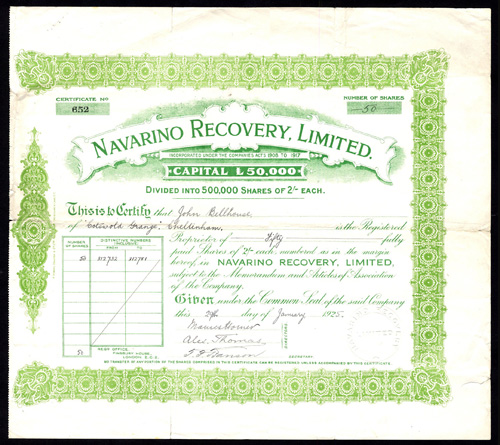 CERTIFICATE No
652
NUMBER OF SHARES
50
NAVARINO RECOVERY, LIMITED.
INCORPORATED UNDER THE COMPANIES ACTS 1908 TO 1917
CAPITAL £50,000
DIVIDED INTO 500,000 SHARES OF 2/- EACH.
This is to Certify that John Bellhouse,
of Cotswold Grange, Cheltenham, is the Registered
Proprietor of Fifty fully
paid Shares of 2/- each, numbered as in the margin
hereof, in NAVARINO RECOVERY, LIMITED,
subject to the Memorandum and Articles of Association
of the Company.
Given under the Common Seal of the said Company
this 29th day of January 1925.
NUMBER OF SHARES
DISTINCTIVE NUMBERS INCLUSIVE
FROM
50
50
DIRECTORS
Alec. Thomas
SECRETARY.
REGD. OFFICE,
FINSBURY HOUSE,
LONDON E.C.2.
NO TRANSFER OF ANY PORTION OF THE SHARES COMPRISED IN THIS CERTIFICATE CAN BE REGISTERED UNLESS ACCOMPANIED BY THIS CERTIFICATE.